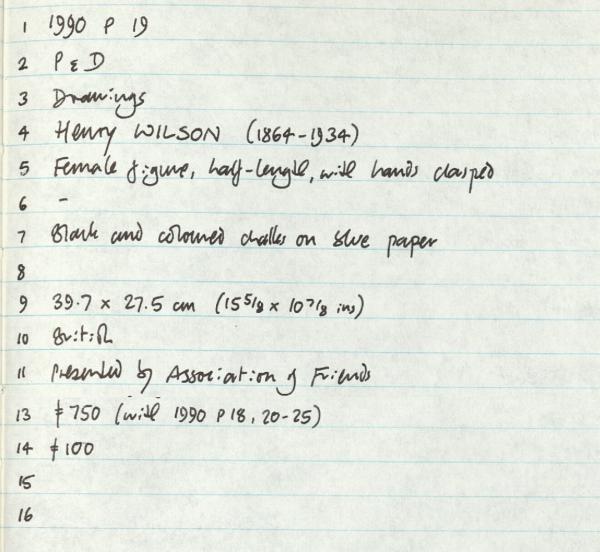 1 1990 P 19
2 P & D
3 Drawings
4 Henry WILSON (1864-1934)
5 Female figure, half-length, with hands clasped
6 -
7 Black and coloured chalks on blue paper
8
9 39.7 x 27.5 cm (15 5/8 x 10 7/8 ins)
10 British
11 Presented by Association of Friends
13 £750 (with 1990 P 18, 20-25)
14 £100
15
16